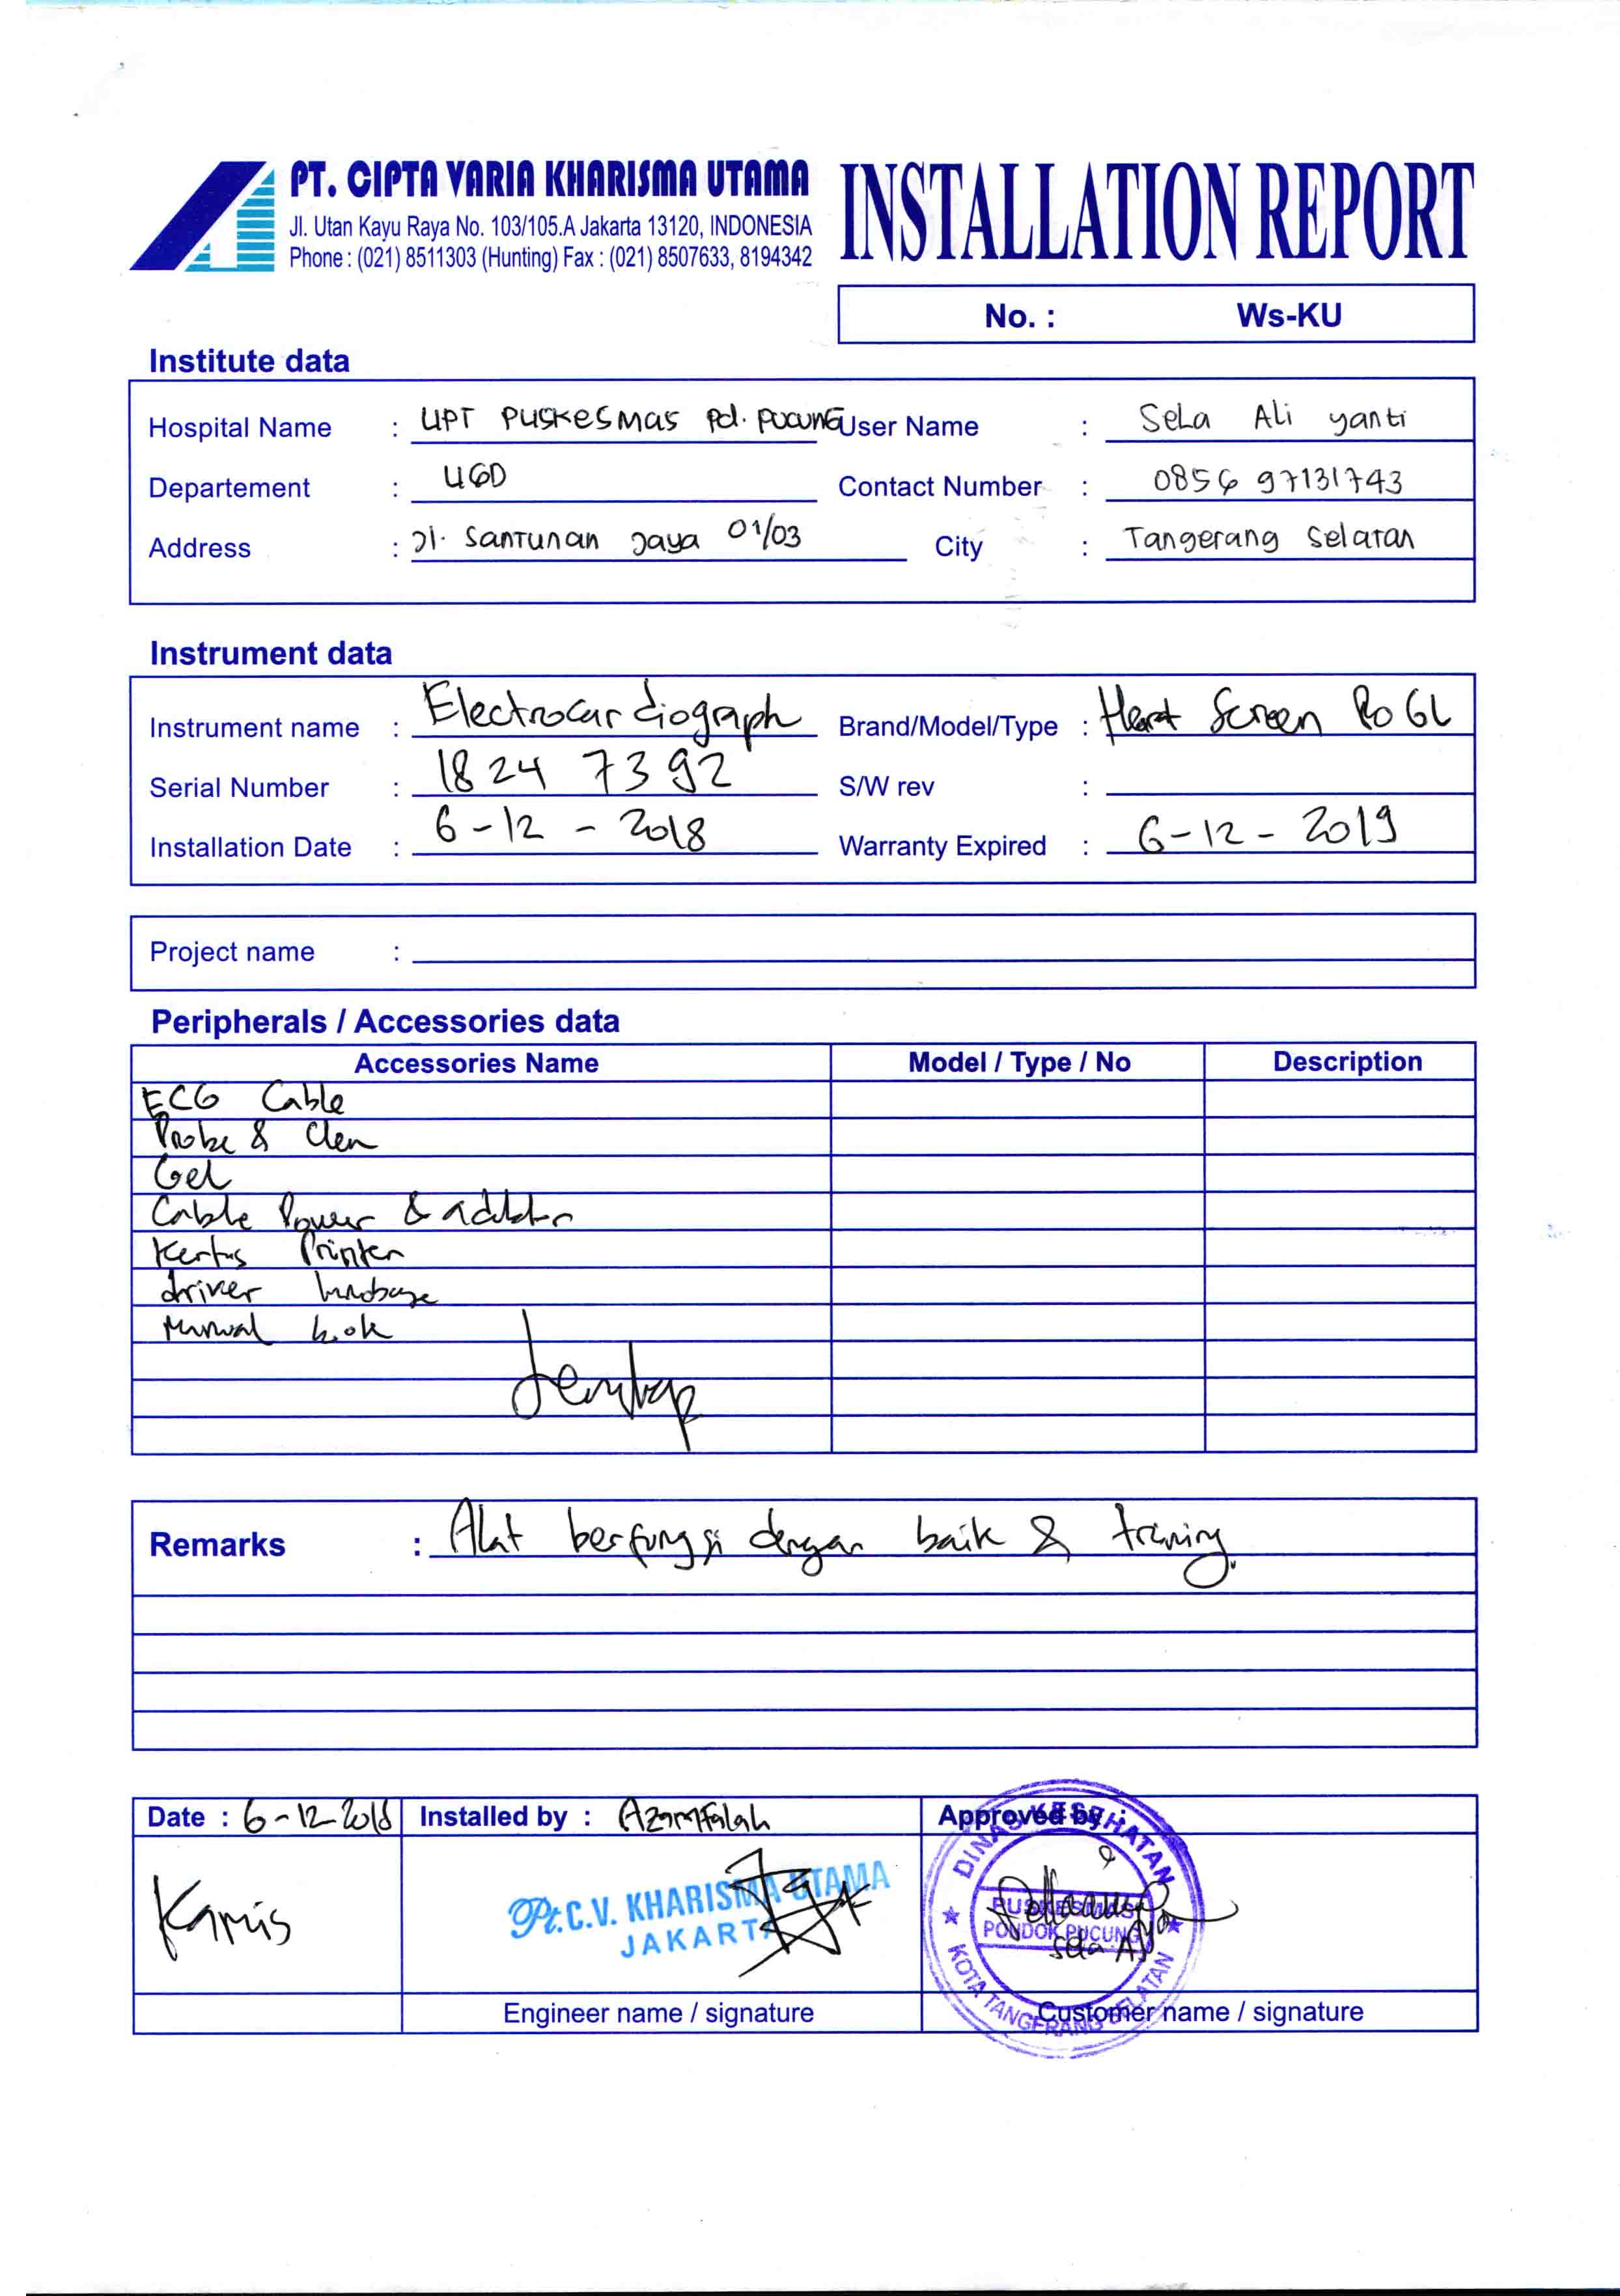 PT. CIPTA VARIA KHARISMA UTAMA
Jl. Utan Kayu Raya No. 103/105.A Jakarta 13120, INDONESIA
Phone : (021) 8511303 (Hunting) Fax : (021) 8507633, 8194342
INSTALLATION REPORT
No. : Ws-KU
Institute data
Hospital Name : UPT PUSKESMAS Pd. PUCUNG User Name : Sela Ali yanti
Departement : UGD Contact Number : 0856 97131743
Address : Jl. Santunan Jaya 01/03 City : Tangerang Selatan
Instrument data
Instrument name : Electrocardiograph Brand/Model/Type : Heart Screen
Serial Number : 1824 7392 S/W rev :
Installation Date : 6-12-2018 Warranty Expired : 6-12-2019
Project name :
Peripherals / Accessories data
Accessories Name Model / Type / No Description
ECG Cable
Probe &
Gel
Cable Power &
Kertas Printer
driver
Manual book
Lengkap
Remarks : Alat berfungsi dengan baik & training.
Date : 6-12-2018 Installed by : Azamfalah Approved by :
Kamis
Pt.C.V. KHARISMA UTAMA
JAKARTA
DINAS KESEHATAN
PUSKESMAS
PONDOK PUCUNG
Sela
KOTA TANGERANG SELATAN
Engineer name / signature Customer name / signature